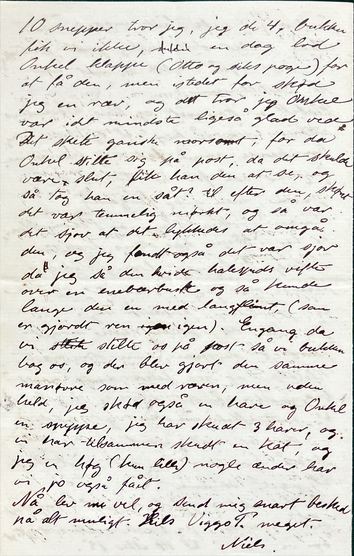 10 snepper tror jeg, jeg de 4, bukken
fik vi ikke, en dag lod
Onkel klappe (Otto og seks penge) for
at få den, men istedet for skød
jeg en ræv, og det tror jeg Onkel
var idt mindste ligeså glad ved.
Det skete ganske morsomt, for da
Onkel stille sig på post, da det skulde
være slut, fik han den at se, og
så tog han en såt til efter den, skønt
det var temmelig mørkt, og så var
det sjov at det lykkedes at omgå
den, og jeg fandt også det var sjov
da jeg så den hvide halespids vifte
over en enebærbusk og så sende
lange den en med langflint, (som
er gjordt ren igen). Engang da
vi stille os på post så vi bukken
bag os, og der blev gjort den samme
manøvre som med ræven, men uden
held, jeg skød også en hare og Onkel
en sneppe, jeg har skudt 3 harer, og
vi har tilsammen skudt en kat, og
jeg en høg (kun lille) nogle ænder har
vi jo også fået.
Nå lev nu vel, og send mig snart besked
på alt muligt. Hils Viggo T. meget.
Niels.